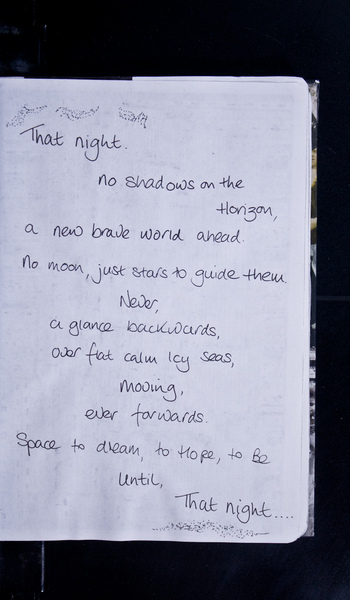 That night.
no shadows on the
Horizon,
a new brave world ahead.
No moon, just stars to guide them.
Never,
a glance backwards,
over flat calm Icy seas,
moving,
ever forwards.
Space to dream, to Hope, to Be
Until,
That night....